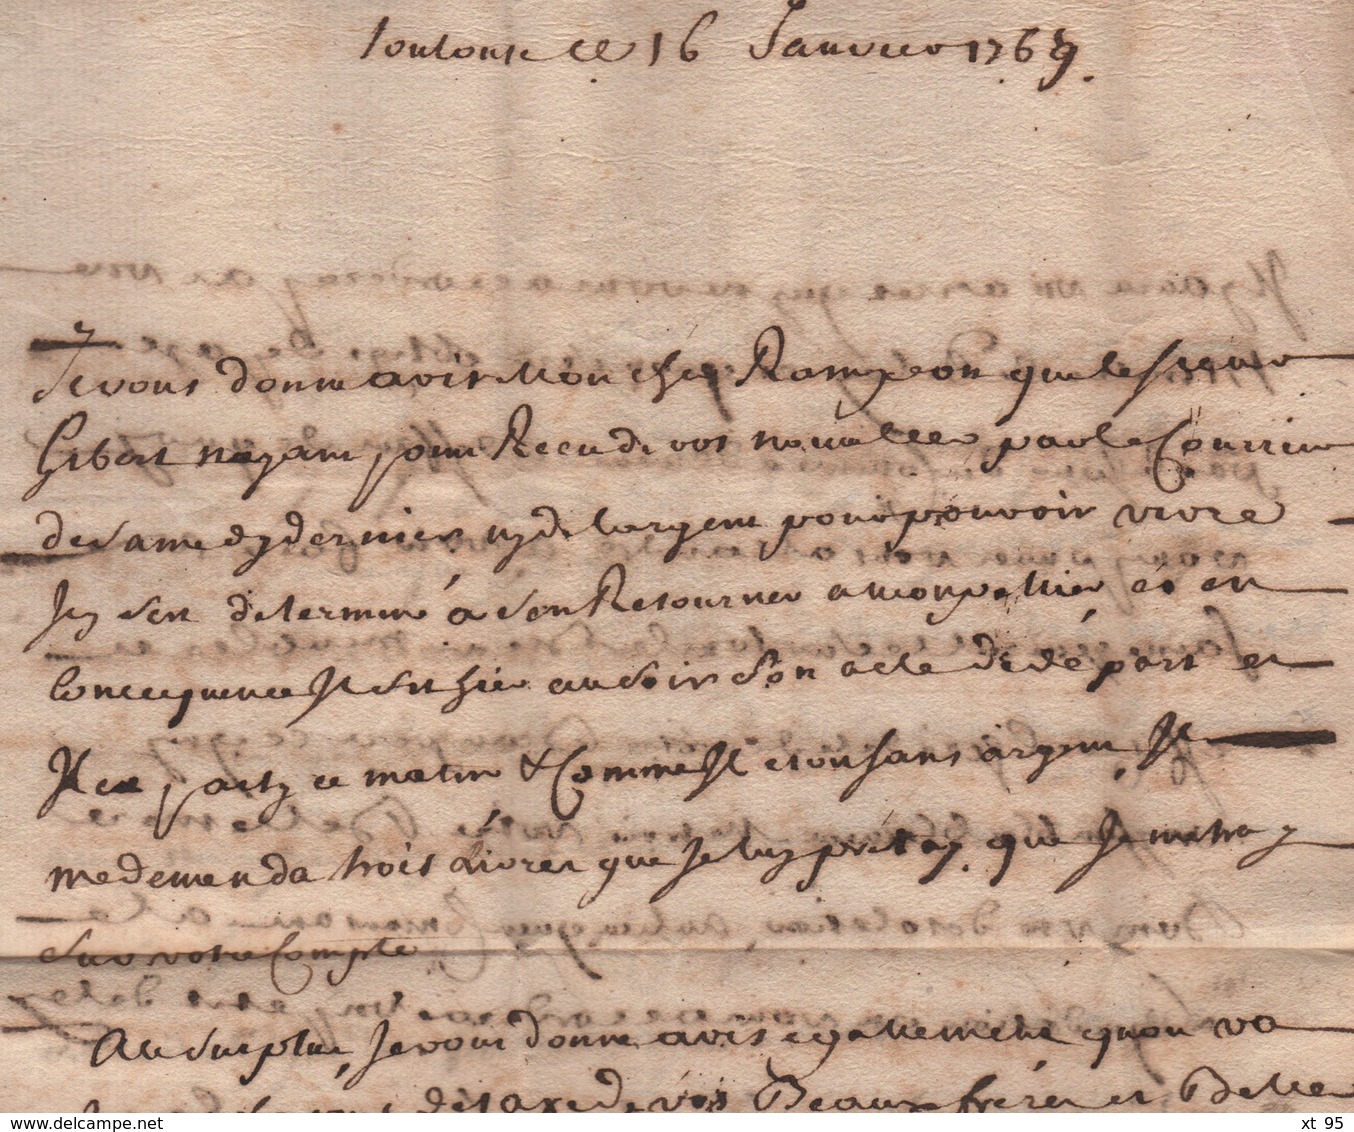 Toulouse ce 16 Janvier 1769.
Je vous donne avis Mon cher Rampon que le sieur
Gibert nayant point Recu de vos nouvelles par le Courrier
de Samedy dernier ny de largent pour pouvoir vivre
determiné a sen Retourner a monpellier et en
Concequence Il fit hier au soir son acte de dé part et
Il est party ce matin & Comme Il etoit sans argent, Il
me demenda trois Livres que Je luy prétay. que Je metray
sur votre Compte
Au surplus, Je vous donne avis egallement quon va
de vos Beaux fréres et Belle
www.delcampe.net
xt 95